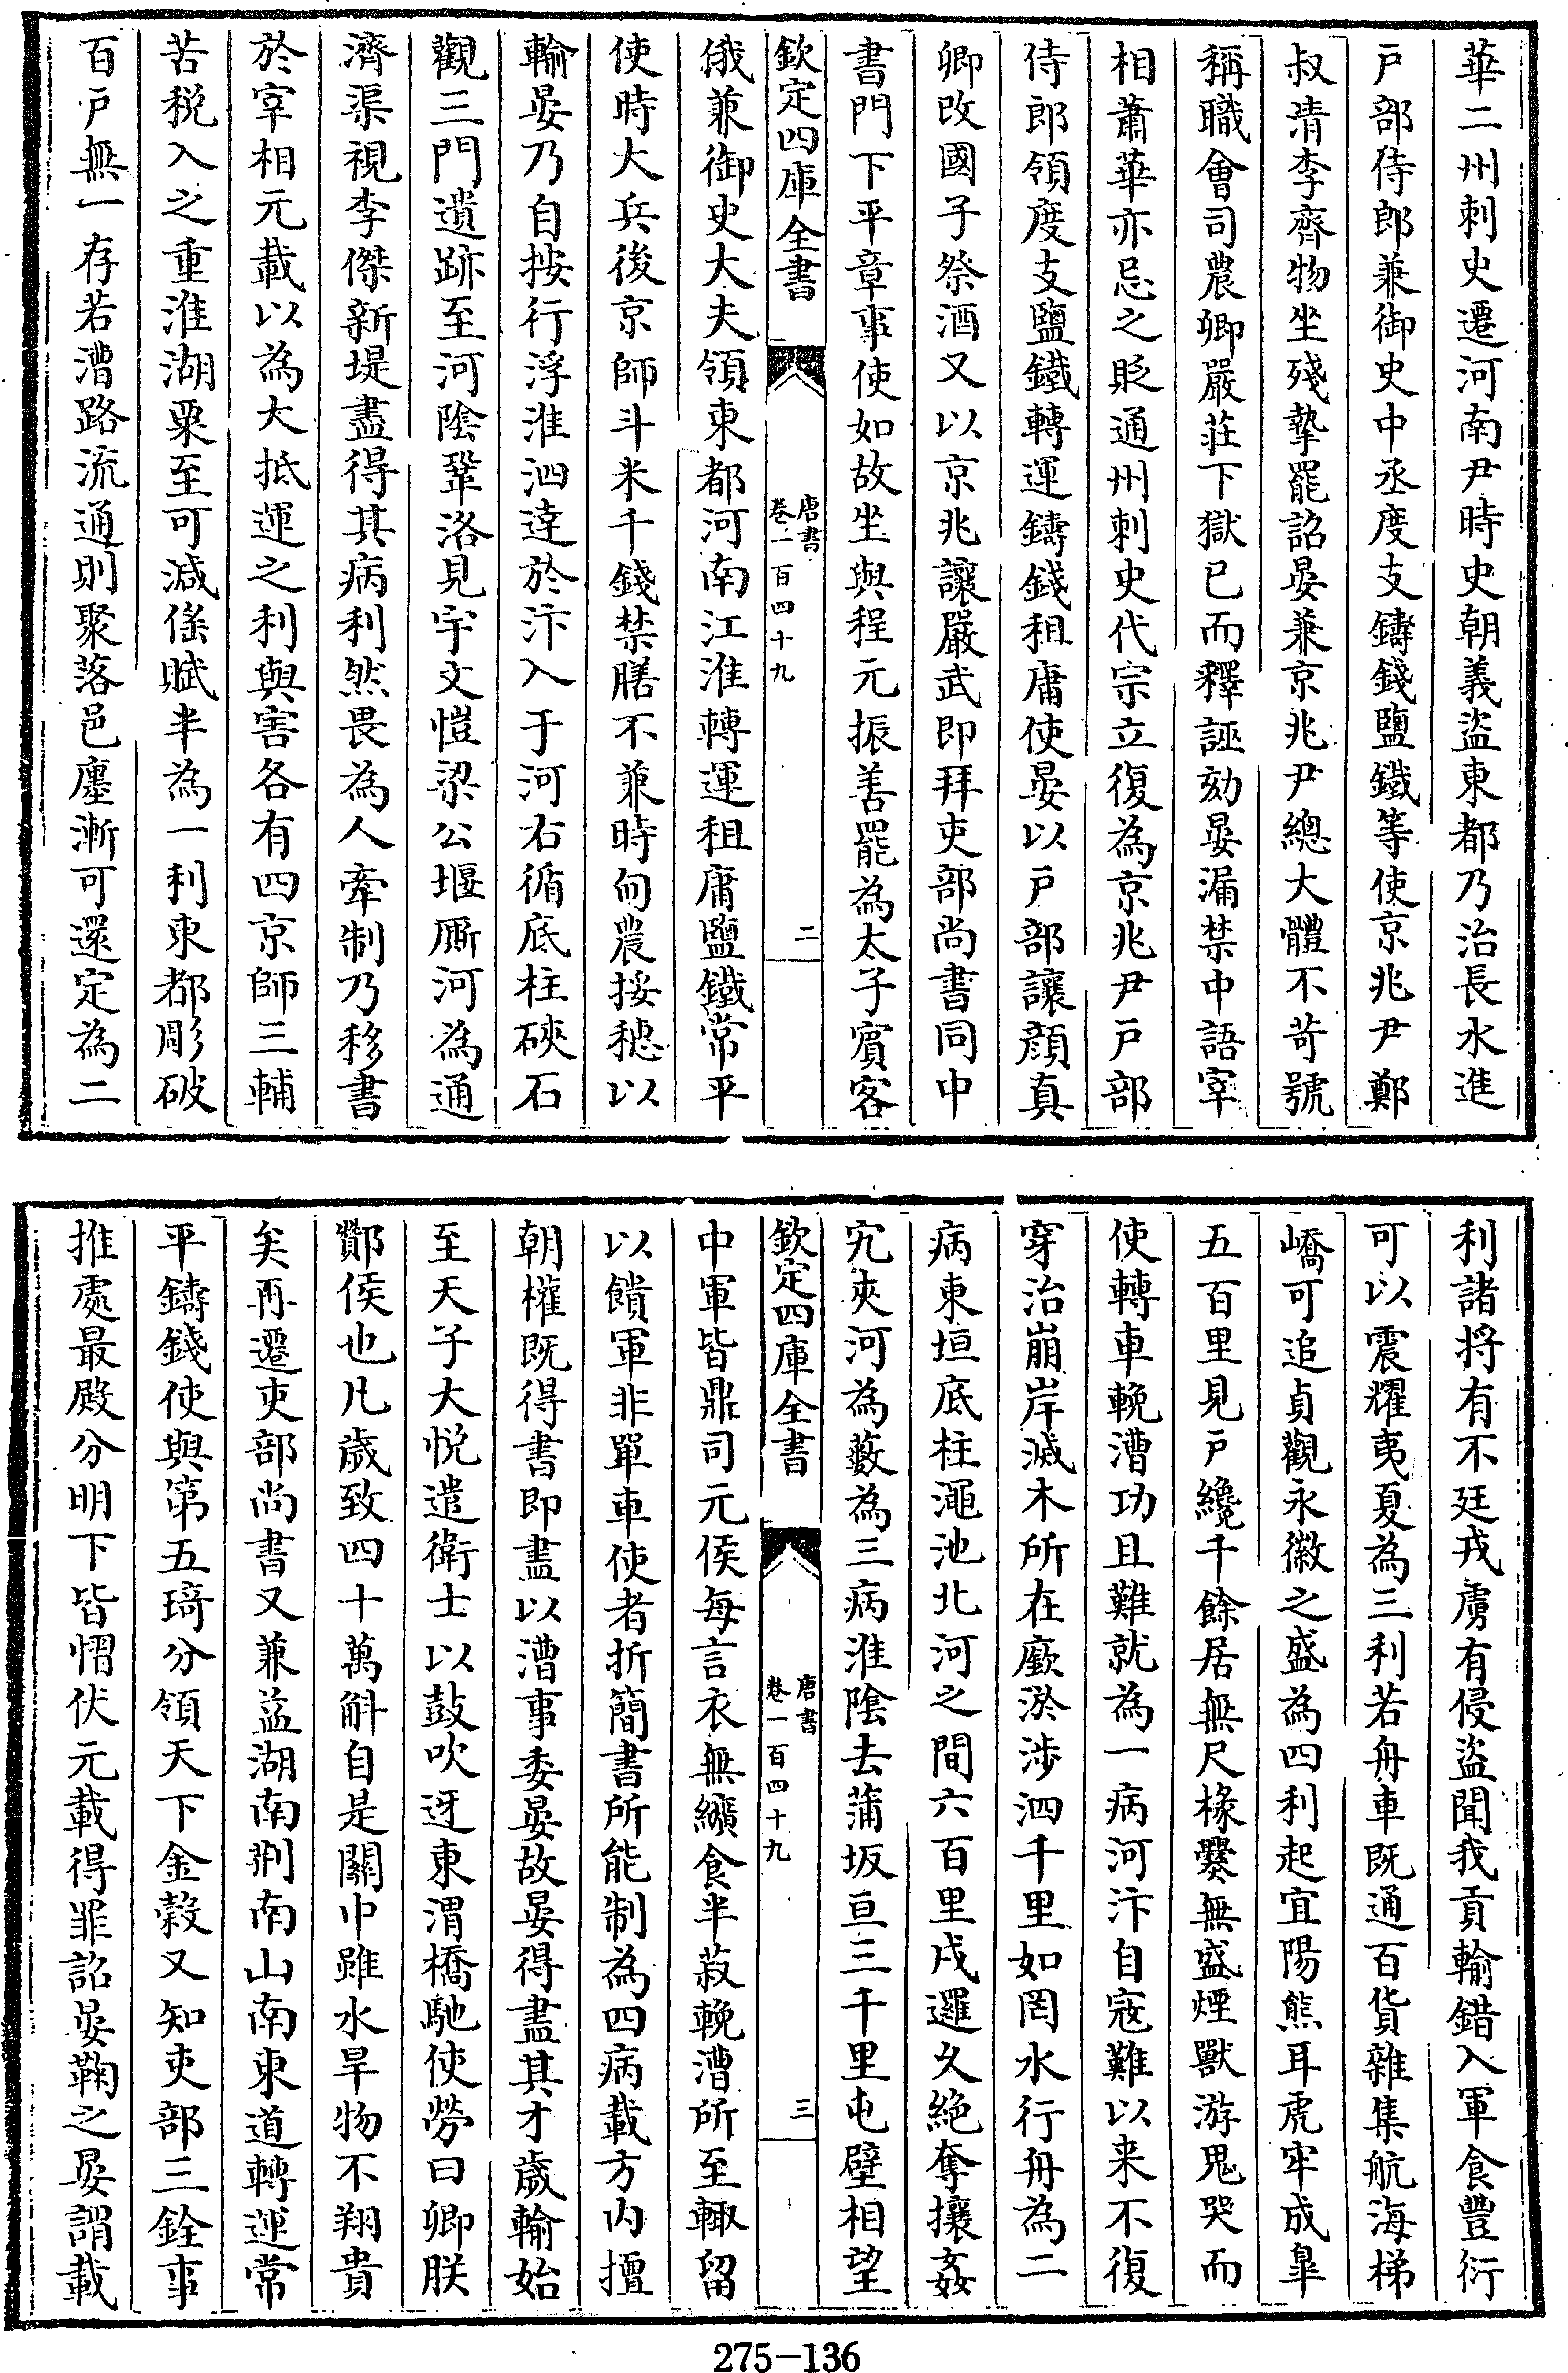 華二州刺史遷河南尹時史朝義盜東都乃治長水進
户部侍郎兼御史中丞度支鑄錢鹽鐵等使京兆尹鄭
叔清李齊物坐殘摯罷詔晏兼京兆尹總大體不苛號
稱職會司農卿嚴莊下獄已而釋誣劾晏漏禁中語宰
相蕭華亦忌之貶通州刺史代宗立復為京兆尹户部
侍郎領度支鹽鐵轉運鑄錢租庸使晏以户部讓顔真
卿改國子祭酒又以京兆讓嚴武即拜吏部尚書同中
書門下平章事使如故坐與程元振善罷為太子賓客
欽定四庫全書
唐書
卷一百四十九
二
俄兼御史大夫領東都河南江淮轉運租庸鹽鐵常平
使時大兵後京師斗米千錢禁膳不兼時甸農挼穗以
輸晏乃自按行浮淮泗達於汴入于河右循底柱硤石
觀三門遺跡至河陰鞏洛見宇文愷梁公堰厮河為通
濟渠視李傑新堤盡得其病利然畏為人牽制乃移書
於宰相元載以為大抵運之利與害各有四京師三輔
苦税入之重淮湖粟至可減徭賦半為一利東都彫破
百户無一存若漕路流通則聚落邑廛漸可還定為二
利諸將有不廷戎虜有侵盜聞我貢輸錯入軍食豐衍
可以震耀夷夏為三利若舟車既通百貨雜集航海梯
嶠可追貞觀永徽之盛為四利起宜陽熊耳虎牢成臯
五百里見户纔千餘居無尺椽爨無盛煙獸游鬼哭而
使轉車輓漕功且難就為一病河汴自寇難以来不復
穿治崩岸滅木所在廞淤涉泗千里如罔水行舟為二
病東垣底柱澠池北河之間六百里戍邏久絶奪攘姦
宄夾河為藪為三病淮陰去蒲坂亘三千里屯壁相望
欽定四庫全書
唐書
卷一百四十九
三
中軍皆鼎司元侯每言衣無纊食半菽輓漕所至輒留
以饋軍非單車使者折簡書所能制為四病載方内擅
朝權既得書即盡以漕事委晏故晏得盡其才歲輸始
至天子大悦遣衛士以鼓吹迓東渭橋馳使勞曰卿朕
酇侯也凡歲致四十萬斛自是關中雖水旱物不翔貴
矣再遷吏部尚書又兼益湖南荆南山南東道轉運常
平鑄錢使與第五琦分領天下金穀又知吏部三銓事
推處最殿分明下皆慴伏元載得罪詔晏鞠之晏謂載
275-136